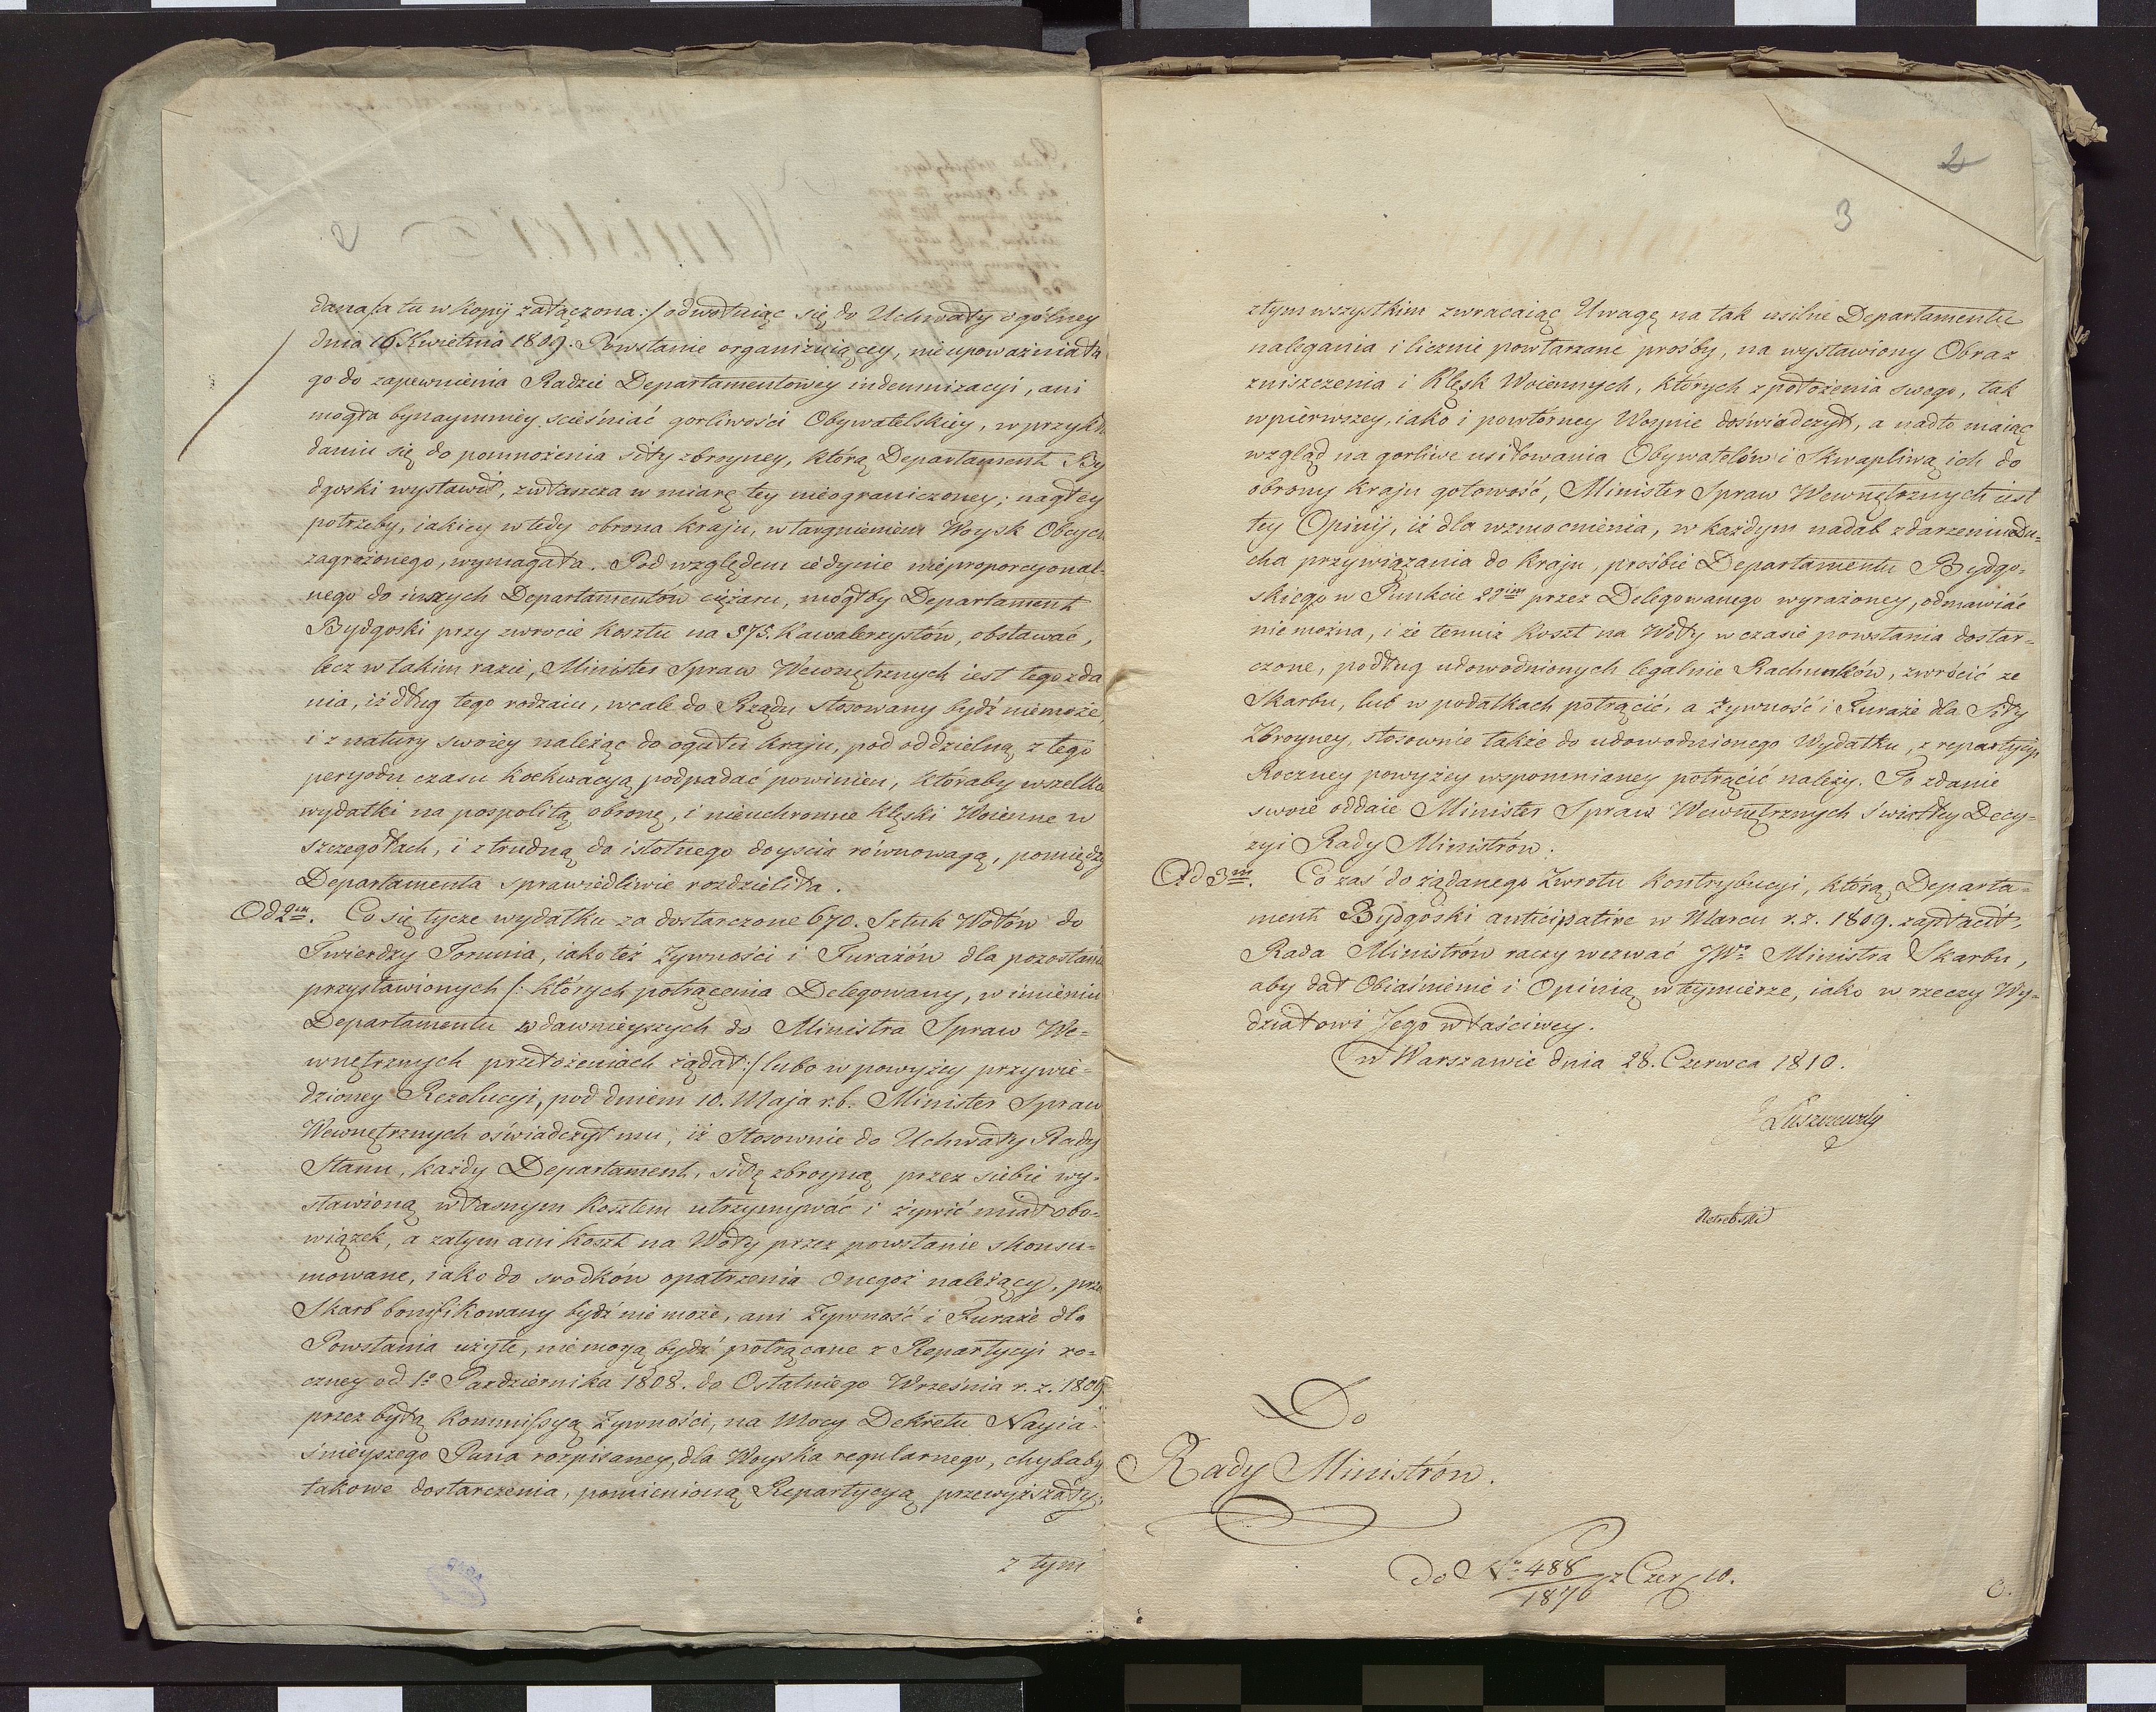 dana /:a tu w kopij załączona:/ odwołuiąc się do Uchwały ogólney
dnia 16 Kwietnia 1809. Powstanie organizuiącey, nieupoważniała
go do zapewnienia Radzie Departamentowey indemnizacyi, ani
mogła bynaymniey scieśniać gorliwości Obywatelskiey, w przykła
daniu się do pomnożenia siły zbroyney, którą Departament By
dgoski wystawił, zwłaszcza w miarę tey nieograniczoney, nagłey
potrzeby, iakiey wtedy obrona kraju, wtargnieniem Woysk Obcych
zagrożonego, wymagała. Pod względem iedynie nieproporcyonal-
nego do inszych Departamentów ciężaru, mogłby Departament
Bydgoski przy zwrocie kosztu na 575. Kawalerzystów, obstawać,
lecz w takim razie, Minister Spraw Wewnętrznych iest tego zda
nia, iż dług tego rodzaiu, wcale do Rządu stosowany bydź niemoże,
i z natury swoiey należąc do ogułu kraju, pod oddzielną z tego
peryodu czasu koekwacyą podpadać powinien, któraby wszelkie
wydatki na pospolitą obronę, i nieuchronne klęski Woienne w
szczegółach, i z trudną do istotnego doyscia równowagą, pomiędzy
Departamenta sprawiedliwie rozdzieliła.
Od 2im. Co się tycze wydatku za dostarczone 670. Sztuk Wołów do
Twierdzy Torunia, iako też żywności i Furażów dla pozostania
przystawionych /: których potrącenia Delegowany, w imieniu
Departamentu w dawnieyszych do Ministra Spraw We-
wnętrznych przełożeniach żądał:/ lubo w powyżey przywie-
dzioney Rezolucyi, pod dniem 10. Maja r.b. Minister Spraw
Wewnętrznych oświadczył mu, iż stosownie do Uchwały Rady
Stanu, każdy Departament, siłę zbroyną przez siebie wy-
stawioną własnym kosztem utrzymywać i żywić miał obo-
wiązek, a zatym ani koszt na Woły przez powstanie skonsu-
mowane, iako do srodków opatrzenia onegoż należący, prze
Skarb bonifikowany bydź nie może, ani żywność i Furaże dla
Powstania użyte, nie mogą bydź potrącane z Repartycyi ro-
czney od 1o Pazdziernika 1808. do Ostatniego Września r. z. 1809
przez byłą Kommissyą żywności, na Mocy Dekretu Nayia-
śnieyszego Pana rozpisaney, dla Woyska regularnego, chybaby
takowe dostarczenia, pomienioną Repartycyą przewyższały;
z tym
2
3
z tym wszystkim zwracaiąc Uwagę na tak usilne Departamentu
nalegania i licznie powtarzane prośby, na wystawiony Obraz
zniszczenia i Klęsk Woiennych, których z położenia swego, tak
w pierwszey, iako i powtórney Woynie doświadczył, a nadto maiąc
wzgląd na gorliwe usiłowania Obywatelów i skwapliwą ich do
obrony kraju gotowość, Minister Spraw Wewnętrznych iest
tey Opinij, iż dla wzmocnienia, w każdym nadal zdarzeniu du-
cha przywiązania do kraju, prośbie Departamentu Bydgo-
skiego w Punkcie 2gim przez Delegowanego wyrażoney, odmawiać
nie można, i że temuż koszt na Woły w czasie powstania dostar-
czone, podług udowodnionych legalnie Rachunków, zwrócić ze
Skarbu, lub w podatkach potrącić, a żywność i Furaże dla Siły
Zbroyney, stosownie także do udowodnionego Wydatku, z repartycyi
Roczney powyżey wspomnianey potrącić należy. To zdanie
swoie oddaie Minister Spraw Wewnętrznych światłey Decy-
zyi Rady Ministrów.
Od 3m. Co zaś do żądanego Zwrotu kontrybucyi, którą Departa-
ment Bydgoski anticipative w Marcu r. z. 1809. zapłacił,
Rada Ministrów raczy wezwać JWo Ministra Skarbu,
aby dał Obiaśnienie i Opinią w tymierze, iako w rzeczy Wy-
działowi Jego właściwey.
w Warszawie dnia 28. Czerwca 1810.
Łuszczewski
Do
Rady Ministrów.
Do No 488/1876 z Czer. 10.